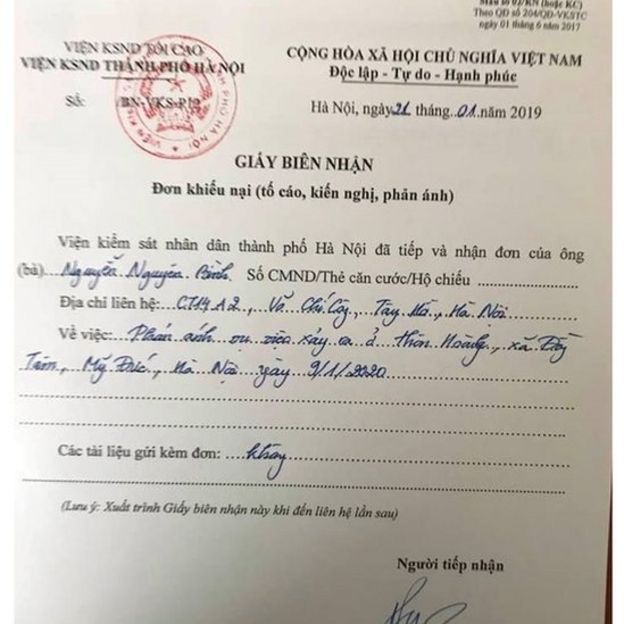 Mẫu số 02/KN (hoặc KC)
Theo QĐ số 204/QĐ-VKSTC
ngày 01 tháng 6 năm 2017
VIỆN KSND TỐI CAO
VIỆN KSND THÀNH PHỐ HÀ NỘI
CỘNG HÒA XÃ HỘI CHỦ NGHĨA VIỆT NAM
Độc lập - Tự do - Hạnh phúc
Số: /BN-VKS-P12
Hà Nội, ngày 21 tháng 01 năm 2019
GIẤY BIÊN NHẬN
Đơn khiếu nại (tố cáo, kiến nghị, phản ánh)
Viện kiểm sát nhân dân thành phố Hà Nội đã tiếp và nhận đơn của ông
(bà) Nguyễn Nguyên Bình Số CMND/Thẻ căn cước/Hộ chiếu
Địa chỉ liên hệ: CT14 A2, Võ Chí Công, Tây Hồ, Hà Nội
Về việc: Phản ánh vụ việc xảy ra ở thôn Hoành, xã Đồng
Tâm, Mỹ Đức, Hà Nội ngày 9/1/2020
Các tài liệu gửi kèm đơn: không
(Lưu ý: Xuất trình Giấy biên nhận này khi đến liên hệ lần sau)
Người tiếp nhận